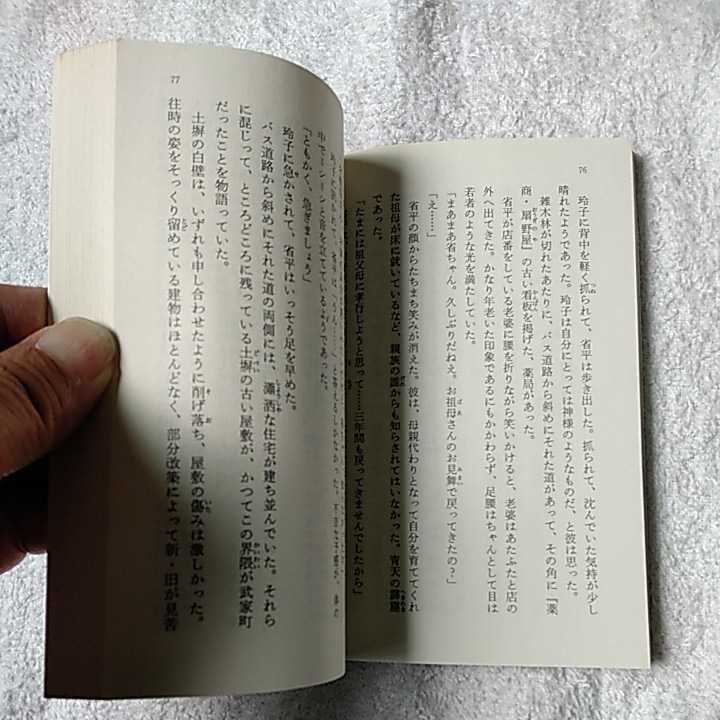 76
玲子に背中を軽く抓られて、省平は歩き出した。抓られて、沈んでいた気持が少し
晴れたようであった。玲子は自分にとっては神様のようなものだ、と彼は思った。
雑木林が切れたあたりに、バス道路から斜めにそれた道があって、その角に『薬
商・扇野屋』の古い看板を掲げた、薬局があった。
省平が店番をしている老婆に腰を折りながら笑いかけると、老婆はあたふたと店の
外へ出てきた。かなり年老いた印象であるにもかかわらず、足腰はちゃんとして目は
若者のような光を満たしていた。
「まあまあ省ちゃん。久しぶりだねえ。お祖母さんのお見舞で戻ってきたの？」
「え……」
省平の顔からたちまち笑みが消えた。彼は、母親代わりとなって自分を育ててくれ
た祖母が床に就いているなど、親族の誰からも知らされてはいなかった。青天の霹靂
であった。
「たまには祖父母に孝行しようと思って……三年間も戻ってきませんでしたから」
77
「ともかく、急ぎましょう」
玲子に急かされて、省平はいっそう足を早めた。
バス道路から斜めにそれた道の両側には、瀟洒な住宅が建ち並んでいた。それら
に混じって、ところどころに残っている土塀の古い屋敷が、かつてこの界隈が武家町
だったことを物語っていた。
土塀の白壁は、いずれも申し合わせたように削げ落ち、屋敷の傷みは激しかった。
往時の姿をそっくり留めている建物はほとんどなく、部分改築によって新・旧が見苦